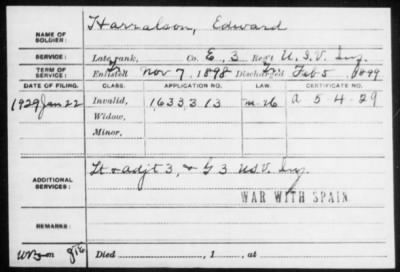 NAME OF SOLDIER: Harralson, Edward
SERVICE: Late rank, Co. E, 3 Reg't U.S.V. Inf.
TERM OF SERVICE: Enlisted Nov 7, 1898 Discharged Feb 8, 1899
DATE OF FILING. CLASS. APPLICATION NO. LAW. CERTIFICATE NO.
1929 Jan 22 Invalid, 1633313 a 5 4 29
Widow,
Minor,
ADDITIONAL SERVICES: Lt & adjt 3, & G 3 U.S.V. Inf.
WAR WITH SPAIN
Died , 1 , at